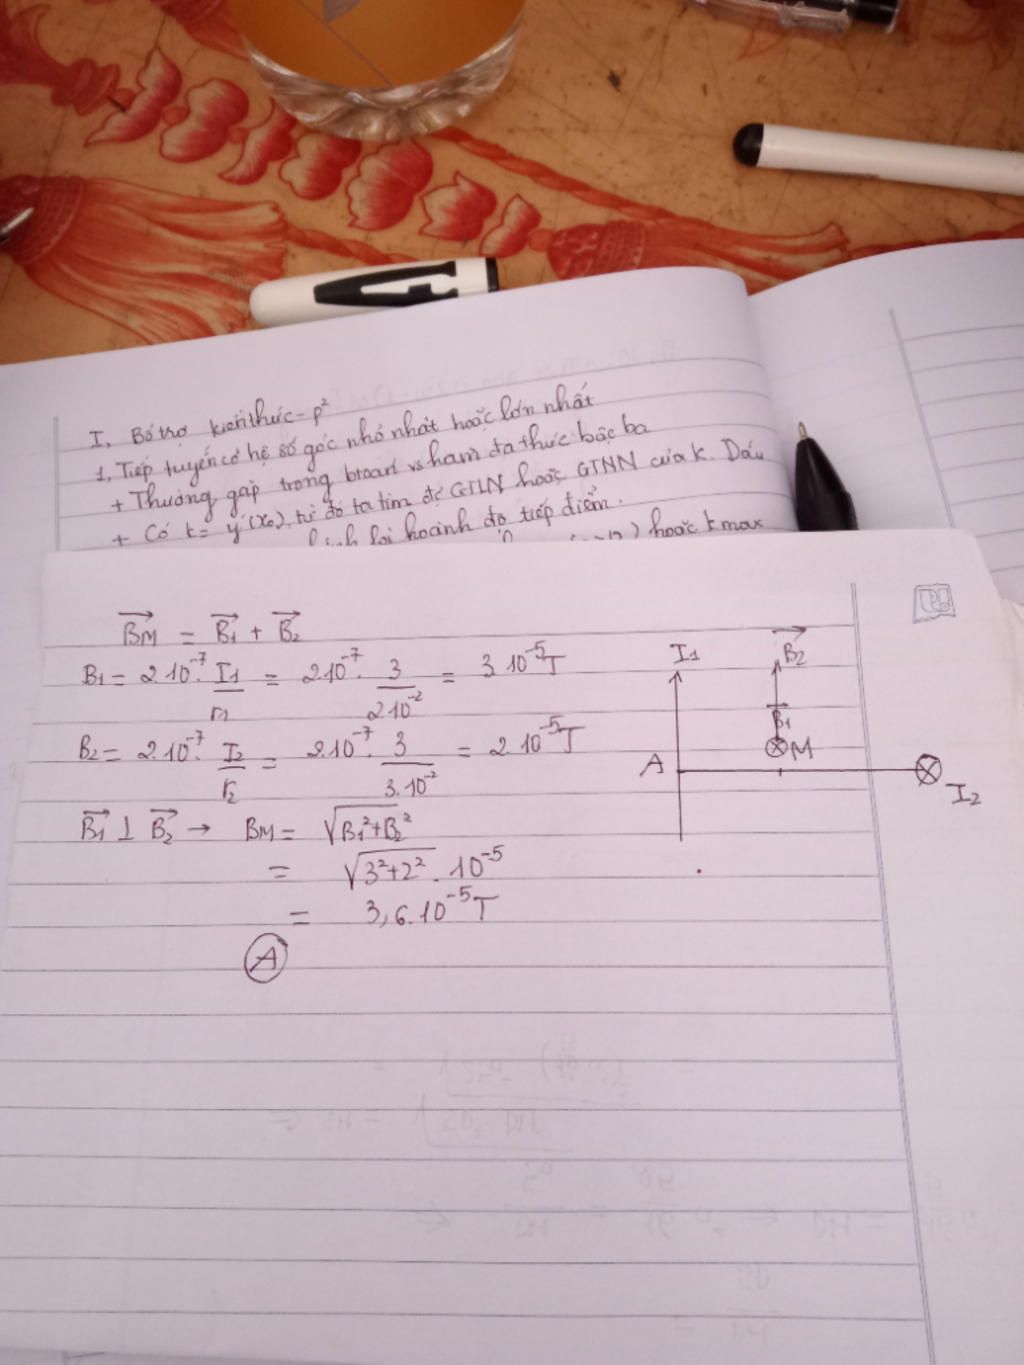 I, Bổ trợ kiến thức - p²
1, Tiếp tuyến có hệ số góc nhỏ nhất hoặc lớn nhất
+ Thường gặp trong btoán vs hàm đa thức bậc ba
+ Có k = y'(x₀), từ đó ta tìm đc GTLN hoặc GTNN của k. Dấu
hoành độ tiếp điểm.
hoặc k max
BM = B1 + B2
B1 = 2.10⁻⁷. I1/r1 = 2.10⁻⁷. 3/2.10⁻² = 3.10⁻⁵T
B2 = 2.10⁻⁷. I2/r2 = 2.10⁻⁷. 3/3.10⁻² = 2.10⁻⁵T
B1 ⊥ B2 → BM = √B1²+B2²
= √3²+2² . 10⁻⁵
= 3,6.10⁻⁵T
A
I1
B2
B1
M
A
I2